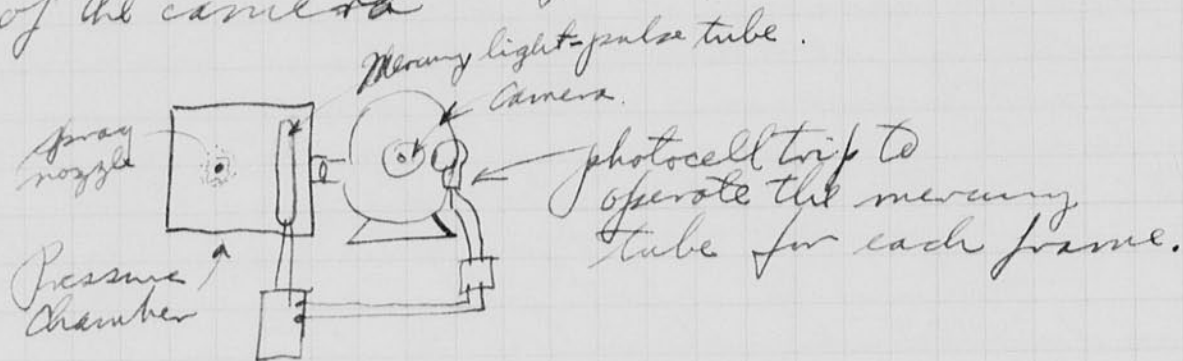 of the camera
Mercury light-pulse tube.
Camera.
spray
nozzle
photocell trip to
operate the mercury
tube for each frame.
Pressure
Chamber